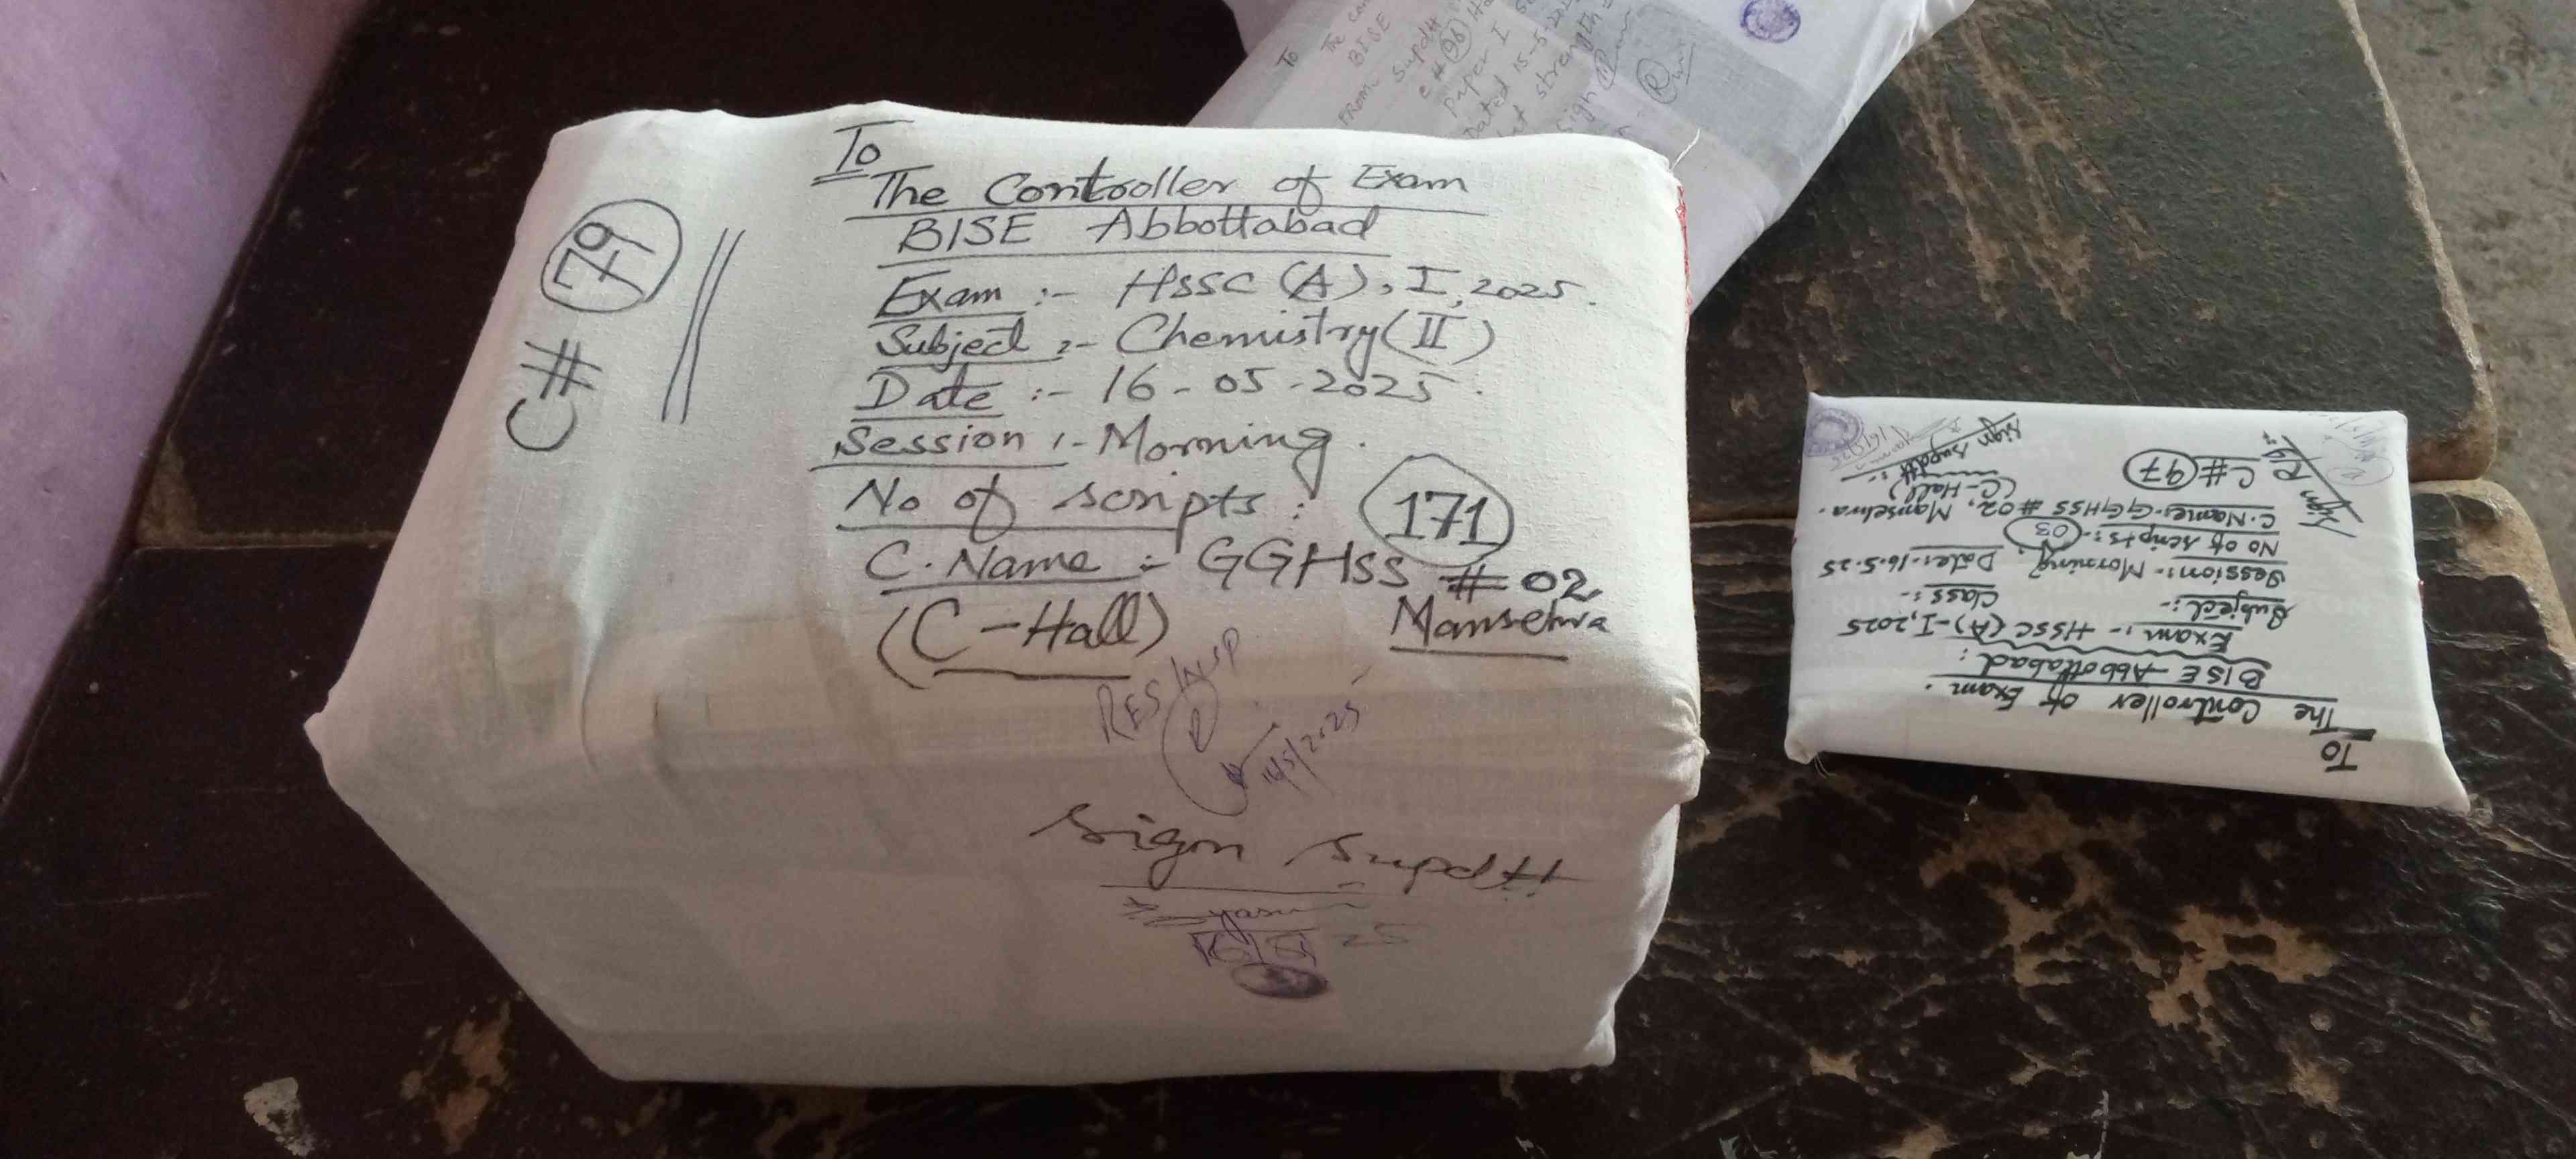 C # 79
To
The Controller of Exam
BISE Abbottabad
Exam :- HSSC (A), I, 2025.
Subject :- Chemistry (II)
Date :- 16-05-2025.
Session :- Morning.
No of scripts : 171
C. Name :- GGHSS # 02,
(C-Hall) Mansehra
RES/INSP
Sign Supdtt
To
The
BISE
FROM:
Supdtt
C # 96
Paper I
Dated 15-5-202
strength =
Sign
To
The Controller of Exam.
BISE Abbottabad:
Exam :- HSSC (A)-I, 2025
Subject :- Class :-
Session :- Morning, Date :- 16.5.25
No of scripts :- 03
C. Name :- GGHSS # 02, Mansehra.
(C-Hall)
C # 97
Sign Supdtt :-
Sign